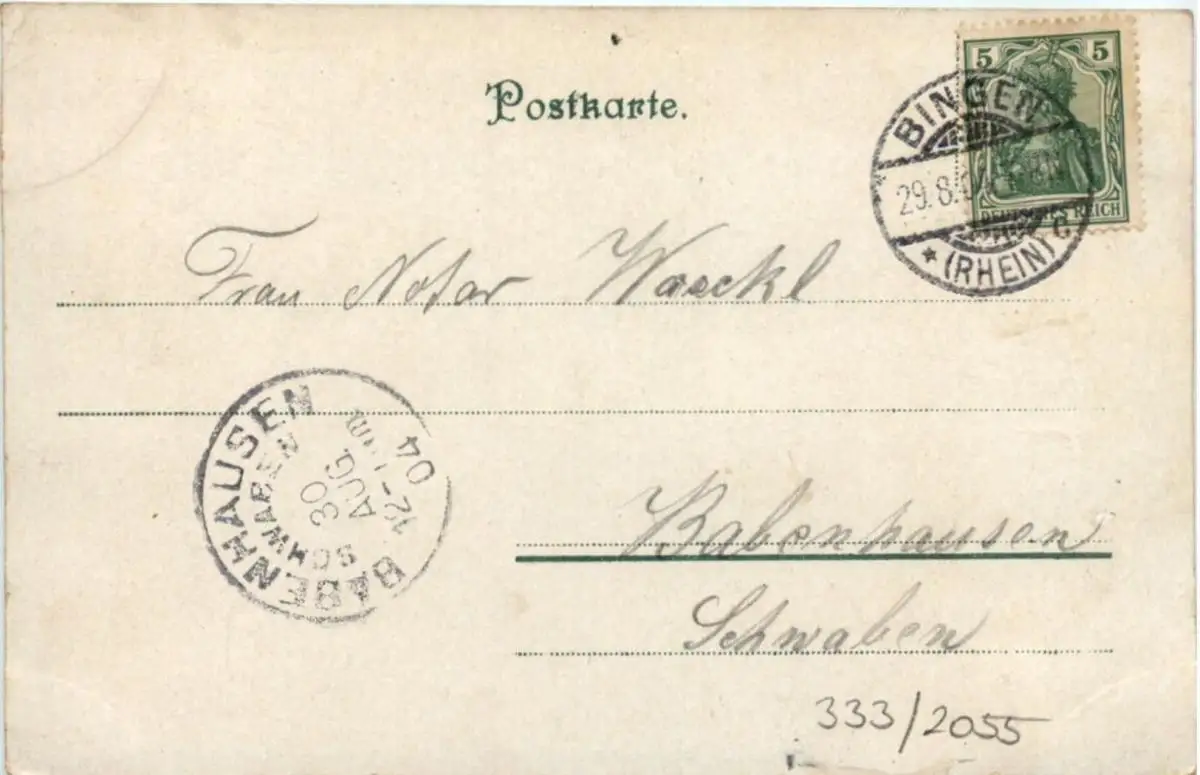 Postkarte.
5 5
DEUTSCHES REICH
BINGEN
29.8.
* (RHEIN) C
Frau Notar Waeckl
BABENHAUSEN
SCHWABEN
30
AUG.
12-1 Nm
04
Babenhausen
Schwaben
333/2055